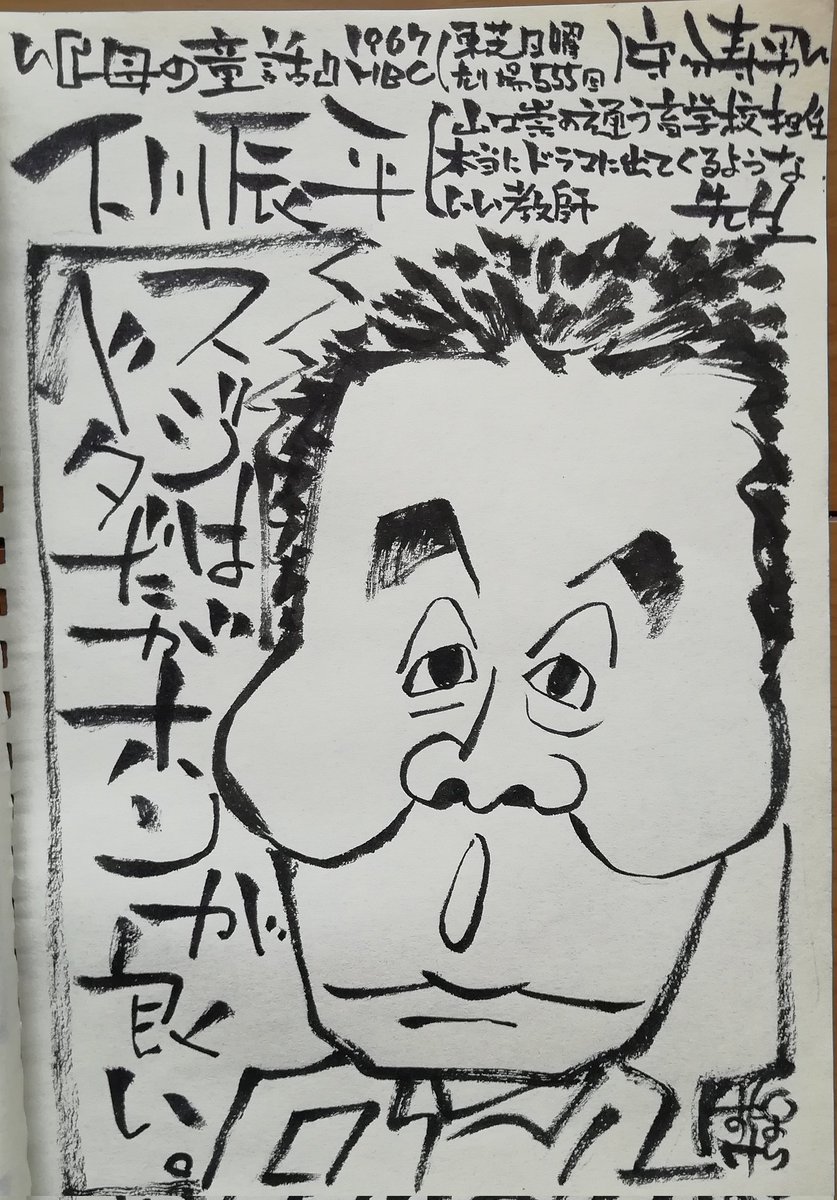 『母の童話』1967 HBC(東芝日曜劇場555回)守分寿男
下川辰平(山口崇の通う盲学校担任
本当にドラマに出てくるような
いい教師 先生
スジは
ヤタだが
ホンが
良い。
ロケーシ